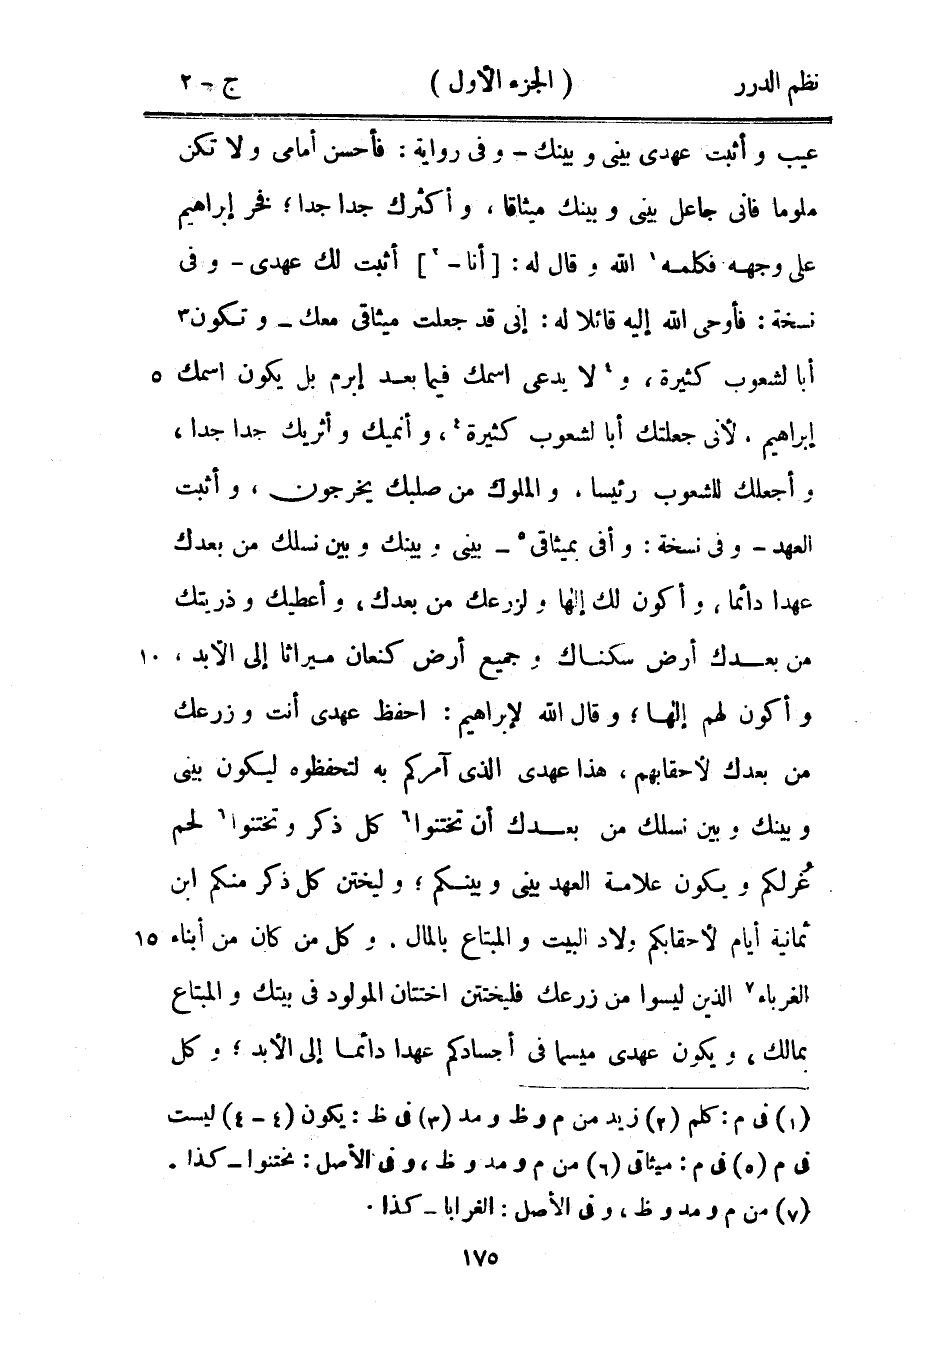 نظم الدرر ( الجزء الأول ) ج - ٢
عيب و أثبت عهدى بينى و بينك - و فى رواية : فأحسن أمامى و لا تكن
ملوما فانى جاعل بينى و بينك ميثاقا ، و أكثرك جدا جدا ؛ فخر إبراهيم
على وجهه فكلمه ١ الله و قال له : [ أنا - ٢ ] أثبت لك عهدى - و فى
نسخة : فأوحى الله إليه قائلا له : إنى قد جعلت ميثاقى معك - و تكون٣
أبا لشعوب كثيرة ، و ٤ لا يدعى اسمك فيما بعد إبرم بل يكون اسمك ٥
إبراهيم . لأنى جعلتك أبا لشعوب كثيرة ٤ ، و أنميك و أثريك جدا جدا ،
و أجعلك للشعوب رئيسا ، و الملوك من صلبك يخرجون ، و أثبت
العهد - و فى نسخة : و أفى بميثاقى ٥ - بينى و بينك و بين نسلك من بعدك
عهدا دائما ، و أكون لك إلها و لزرعك من بعدك ، و أعطيك و ذريتك
من بعدك أرض سكناك و جميع أرض كنعان ميراثا إلى الأبد ، ١٠
و أكون لهم إلها ؛ و قال الله لإبراهيم : احفظ عهدى أنت و زرعك
من بعدك لأحقابهم ، هذا عهدى الذى آمركم به لتحفظوه ليكون بينى
و بينك و بين نسلك من بعدك أن تختنوا ٦ كل ذكر و تختنوا ٦ لحم
غُرلكم و يكون علامة العهد بينى و بينكم ؛ و ليختن كل ذكر منكم ابن
ثمانية أيام لأحقابكم ولاد البيت و المبتاع بالمال . و كل من كان من أبناء ١٥
الغرباء ٧ الذين ليسوا من زرعك فليختتن اختتان المولود فى بيتك و المبتاع
بمالك ، و يكون عهدى ميسما فى أجسادكم عهدا دائما إلى الأبد ؛ و كل
(١) فى م : كلم (٢) زيد من م و ظ و مد (٣) فى ظ : يكون (٤ - ٤) ليست
فى م (٥) فى م : ميثاقى (٦) من م و مد و ظ ، و فى الأصل : نختنوا - كذا .
(٧) من م و مد و ظ ، و فى الأصل : الغرابا - كذا .
١٧٥